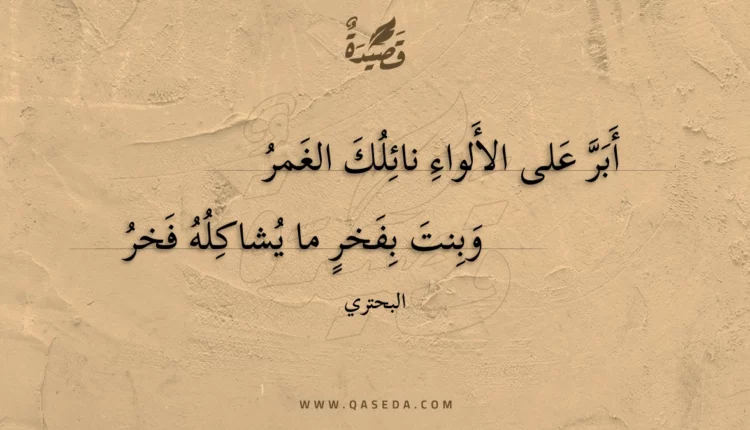 قَصِيدَةٌ
أَبَرَّ عَلى الأَلواءِ نائِلُكَ الغَمرُ
وَبِنتَ بِفَخرٍ ما يُشاكِلُهُ فَخرُ
البحتري
WWW.QASEDA.COM